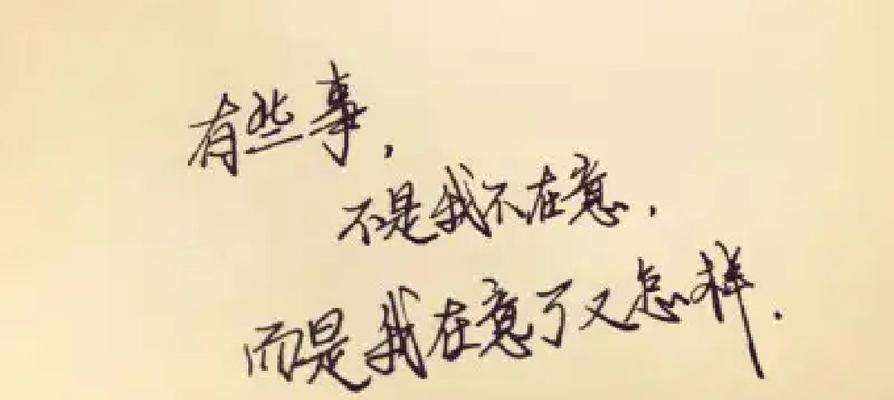 有些事,
不是我不在意,
而是我在意了又怎样.